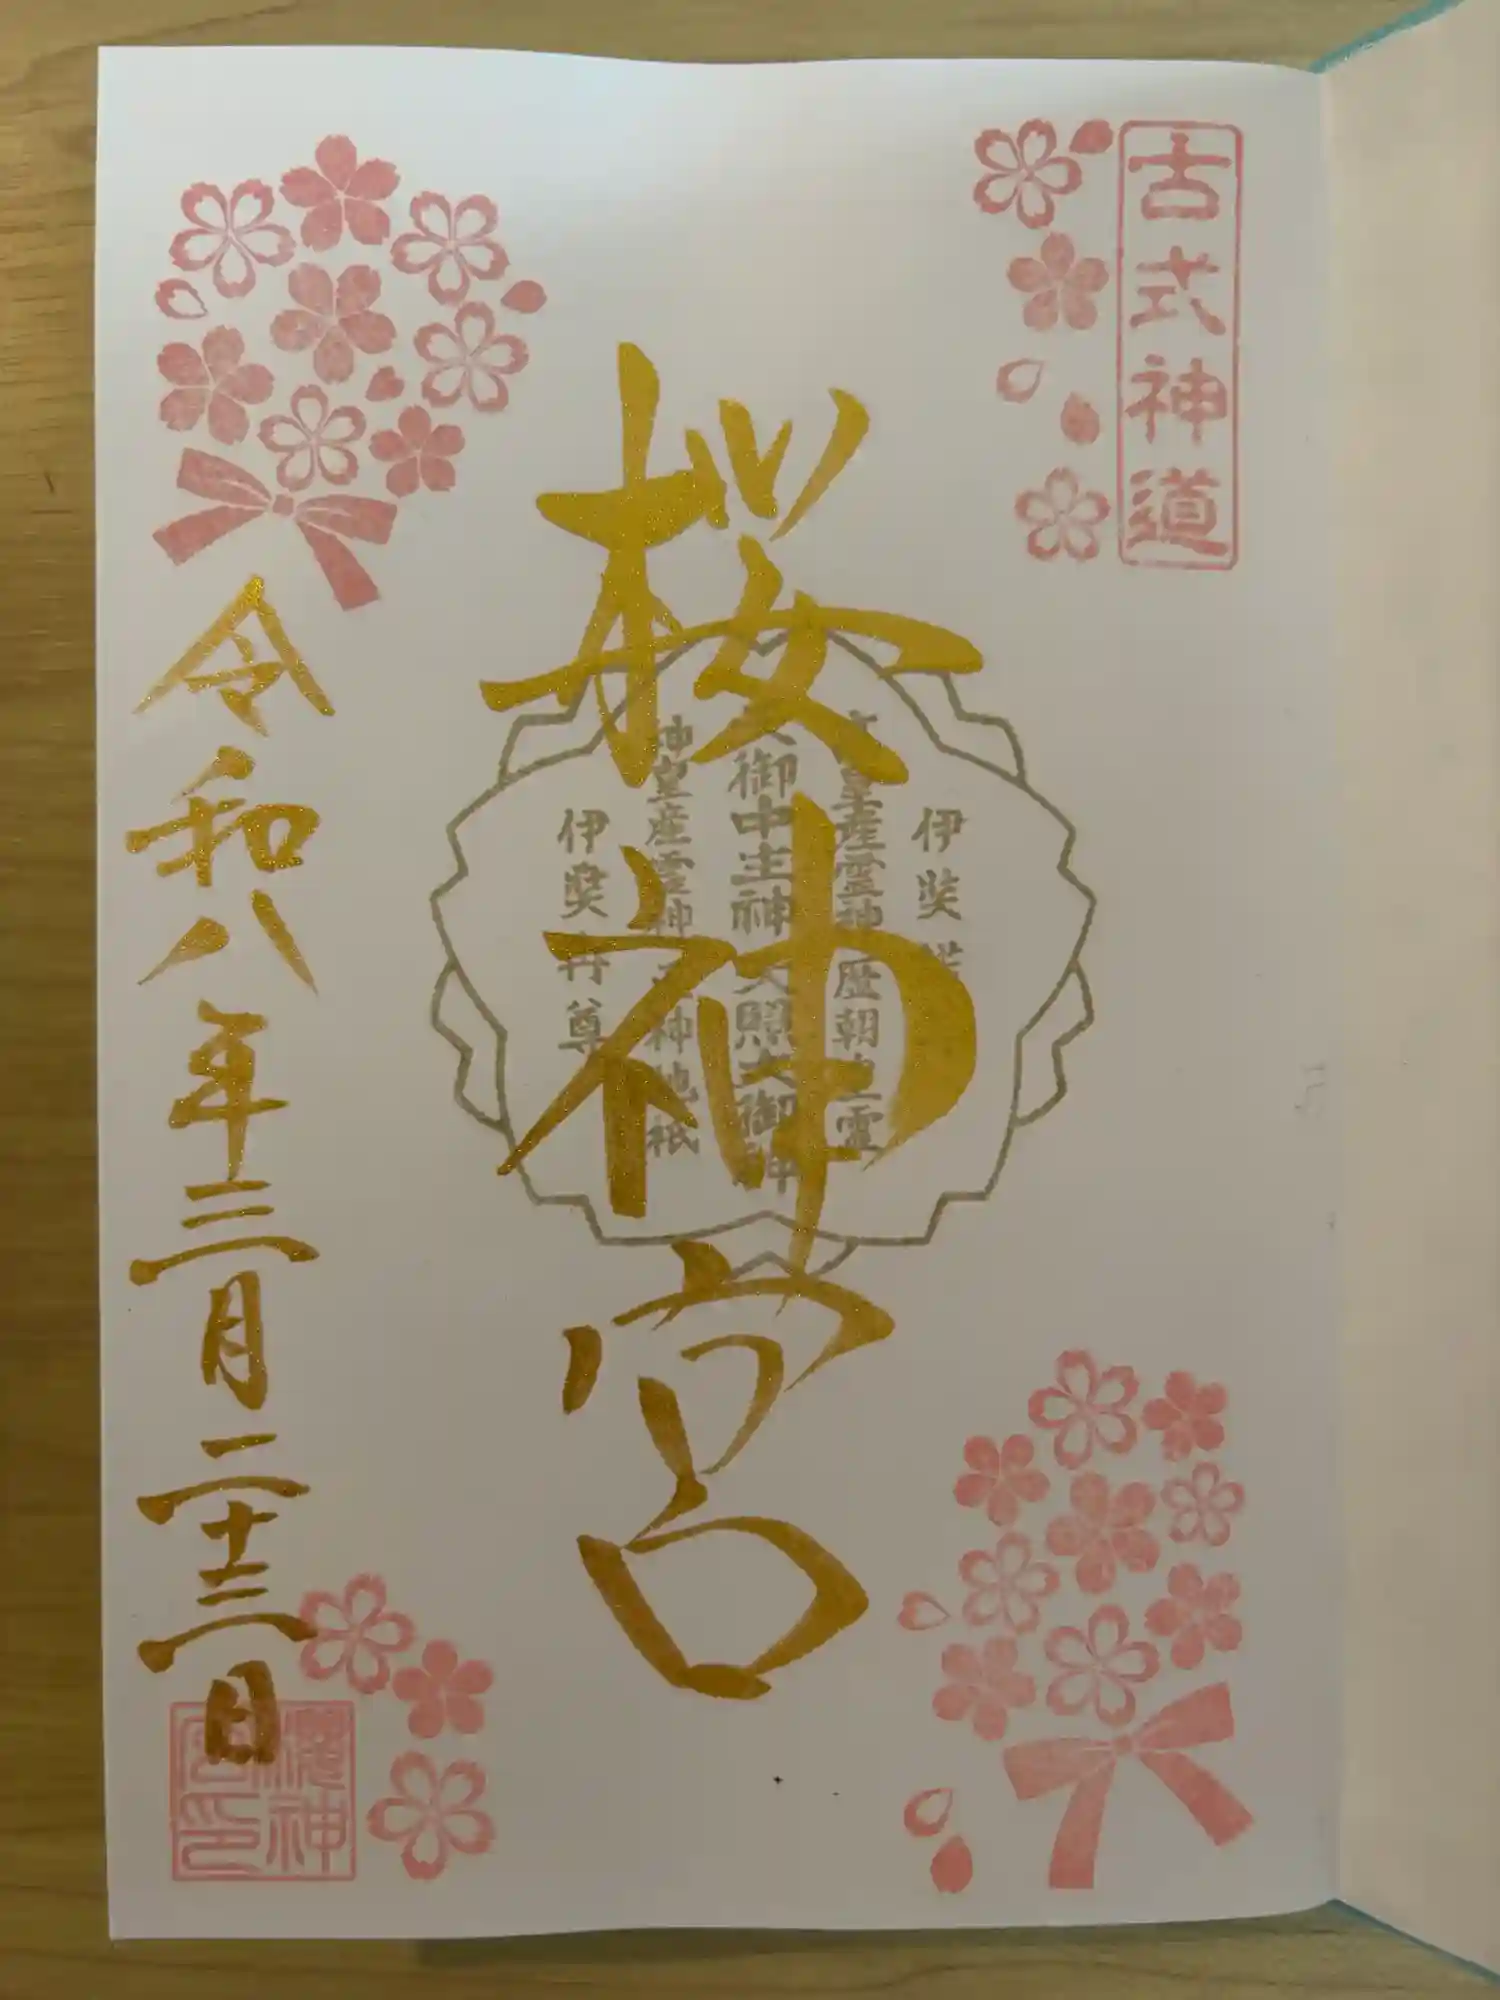 古式神道
桜神宮
伊奘
皇産霊神 歴朝皇霊
御中主神 天照大御神
神皇産霊神 天神地祇
伊奘冉尊
令和八年三月二十三日
桜神宮印